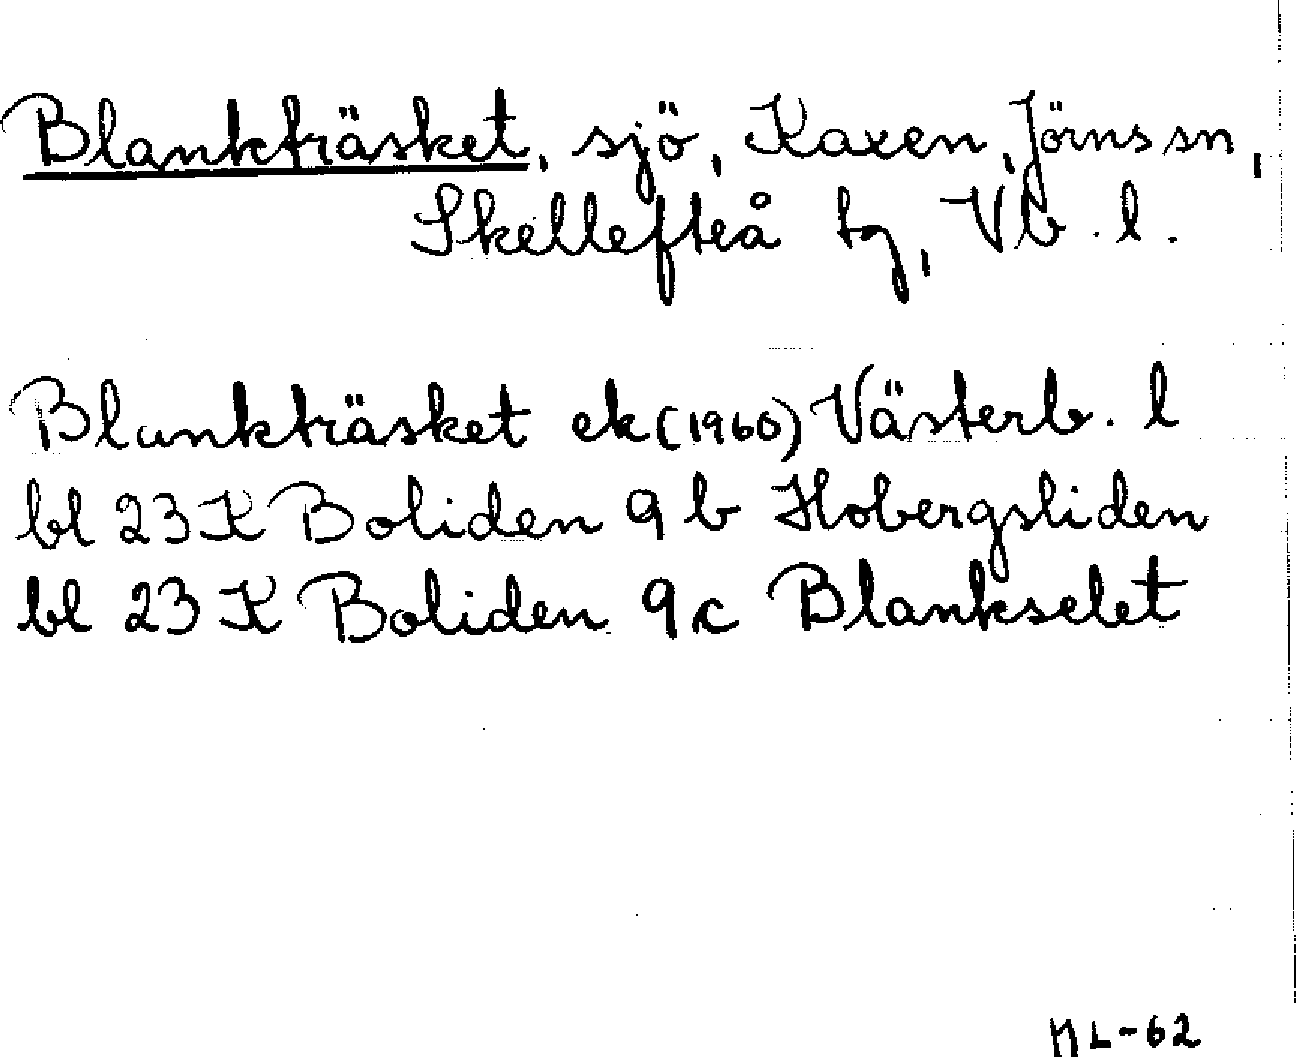 Blankträsket, sjö, Kaxen, Jörns sn,
Skellefteå tg, Vb. l.
Blankträsket ek (1960) Västerb. l
bl 23 K Boliden 9 b Hobergsliden
bl 23 K Boliden 9c Blankselet
ML-62